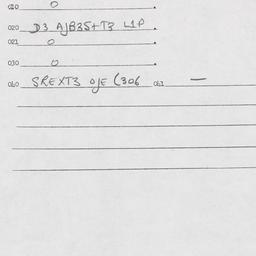 010 0
020 D3 AJB35+T3 L1P
021 0
030 0
060 SREXT3 OJE (306 061 —